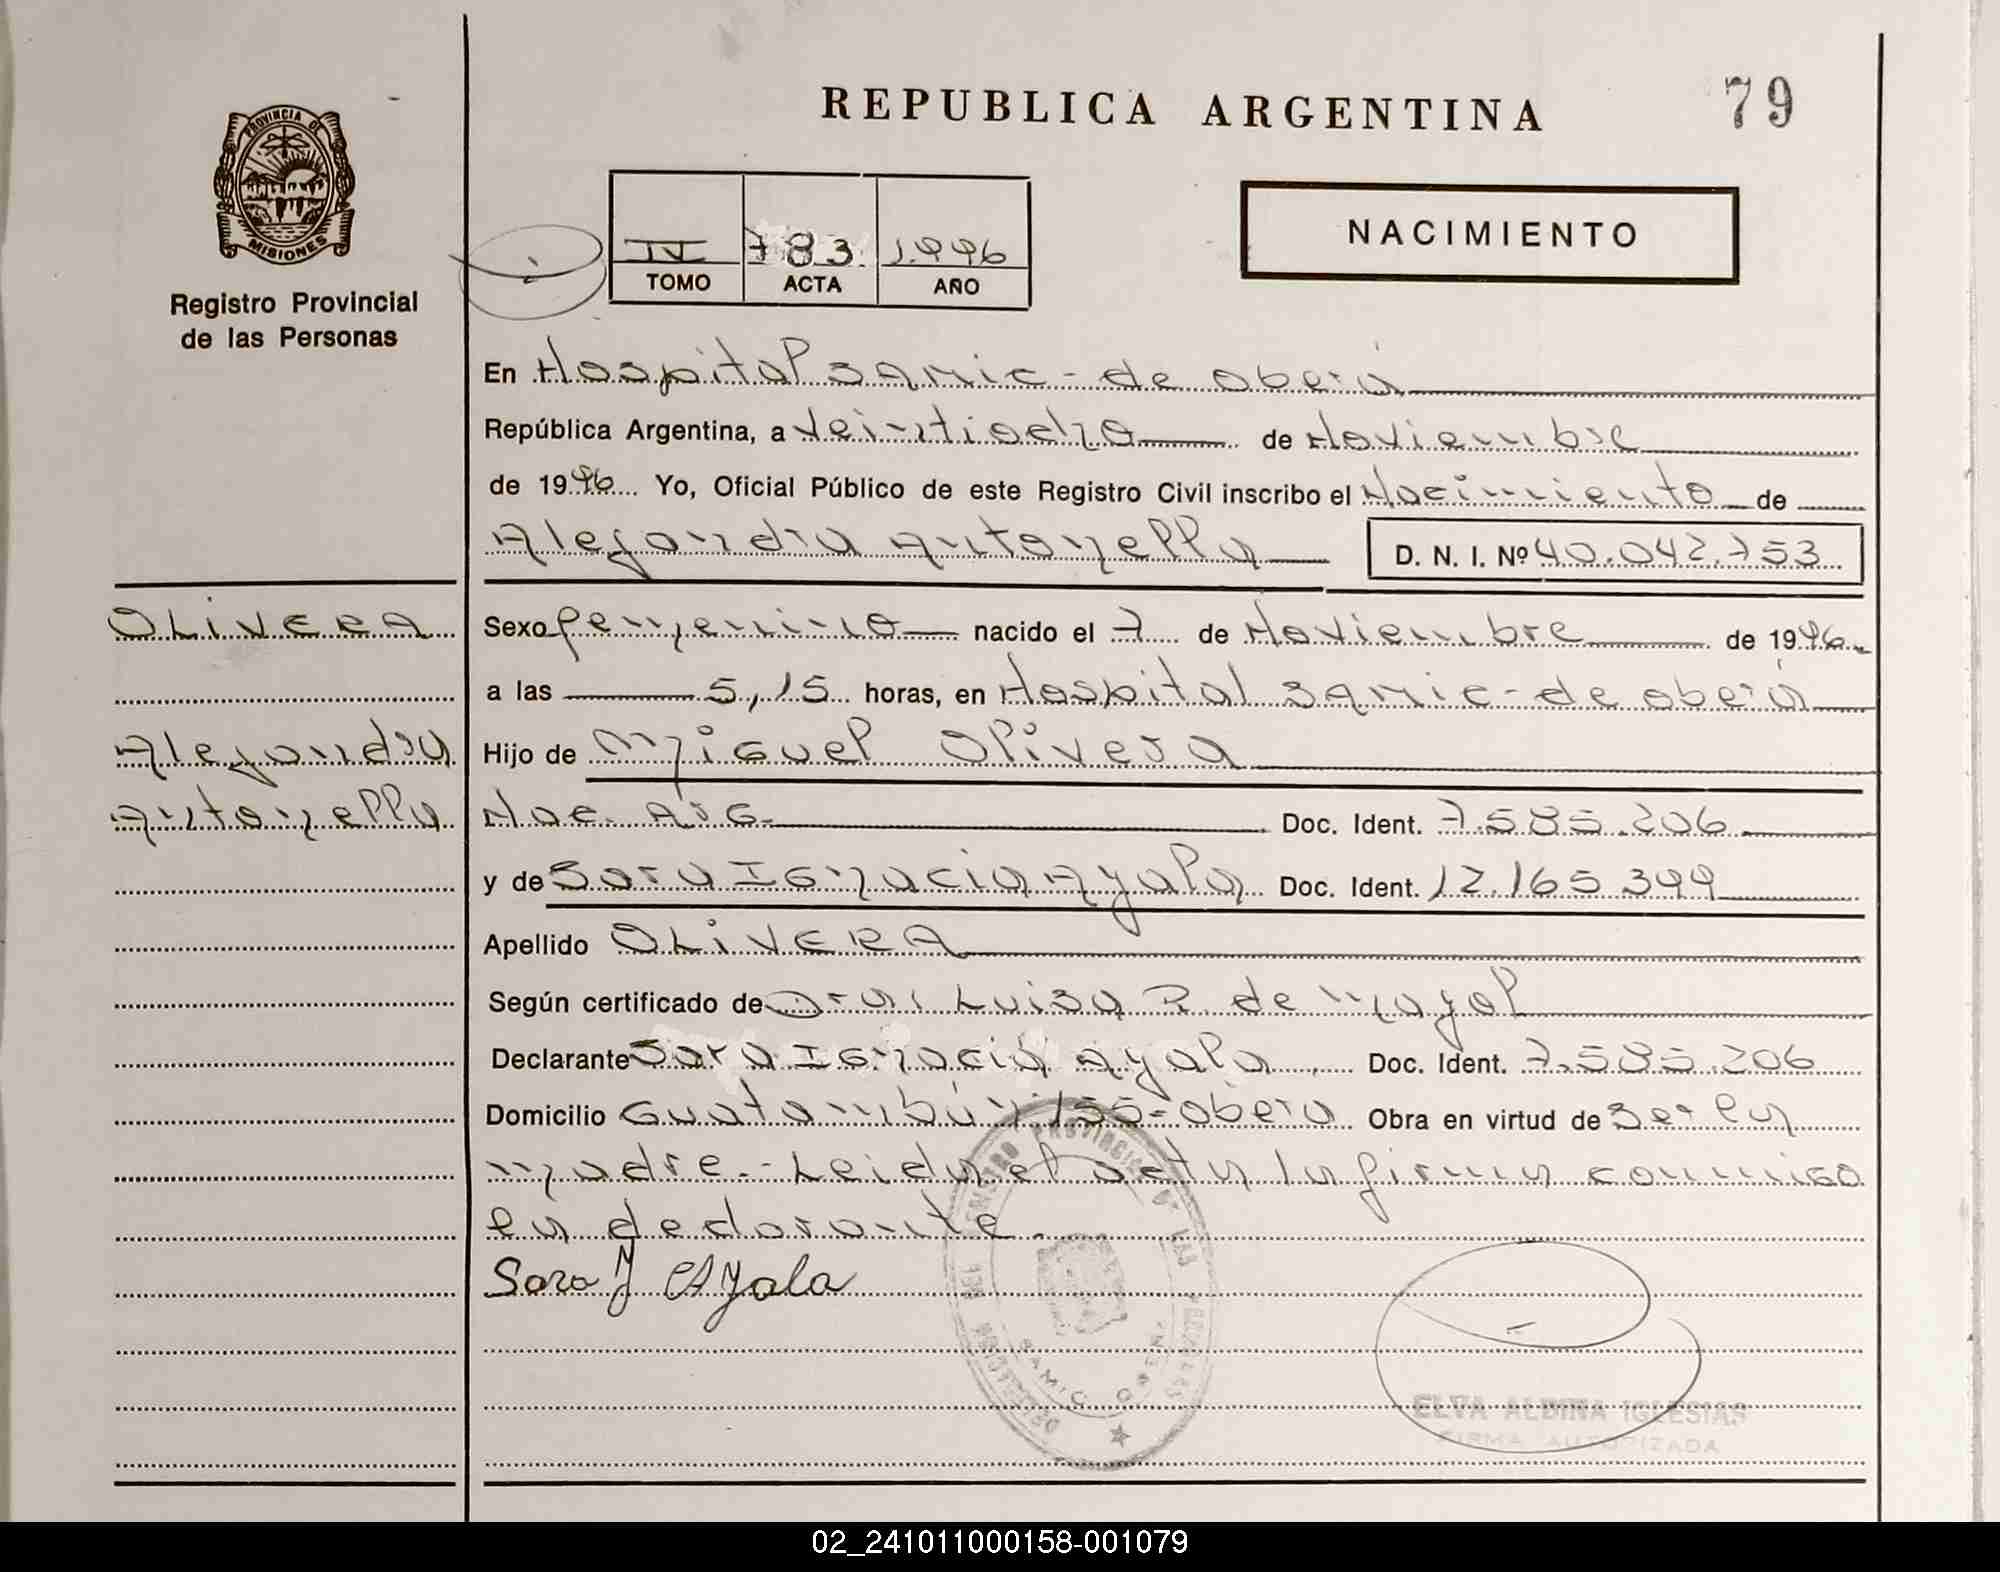 REPUBLICA ARGENTINA
79
PROVINCIA DE
MISIONES
Registro Provincial
de las Personas
IV 783 1.996
TOMO ACTA AÑO
NACIMIENTO
En Hospital Samic - de oberá
República Argentina, a Veintiocho de Noviembre
de 1996 Yo, Oficial Público de este Registro Civil inscribo el Nacimiento de
Alejandra Antonella D. N. I. Nº 40.042.753
OLIVERA
Alejandra
Antonella
Sexo Femenino nacido el 7 de Noviembre de 1996
a las 5,15 horas, en Hospital Samic - de oberá
Hijo de Miguel Olivera
Nac. Arg. Doc. Ident. 7.585.206
y de Sara Ignacia Ayala Doc. Ident. 12.165.399
Apellido OLIVERA
Según certificado de Dra. Luisa R. de Mayol
Declarante Sara Ignacia Ayala Doc. Ident. 7.585.206
Domicilio Guatambú N: 155 - Oberá Obra en virtud de Ser la
madre.- Leida el acta la firma conmigo
la declarante.
Sara I Ayala
REGISTRO PROVINCIAL DE LAS PERSONAS
SAMIC OBERA
ELVA ALBINA IGLESIAS
FIRMA AUTORIZADA
02_241011000158-001079